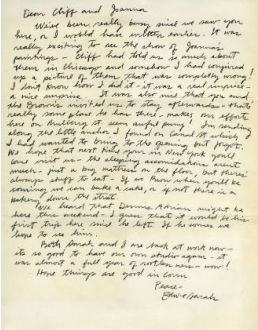 Dear Cliff and Joanna
We've been really busy since we saw you
here, or I would have written earlier. It was
really exciting to see the show of Joanna's
paintings - Cliff had told us so much about
them in Chicago and somehow I had conjured
up a picture of them that was completely wrong!
I don't know how I did it - it was a real surprise -
a nice surprise. It was also nice that you and
the Browns invited us to stay afterwards - that's
really some place he has there - makes our efforts
here on building it seem awful puny! I'm sending
along the little anchor I found on Canal St which I
I had wanted to bring to the opening but forgot.
We hope that next time you're in New York you'll
come visit us - the sleeping accomidations aren't
much - just a big mattress on the floor, but there's
always steps to eat - If we know when you'll be
coming we can bake a cake, or if not there is a
bakery down the street.
We heard that Dennis Adrian might be
here this weekend - I guess that it would be his
first trip here since he left. If he comes we
hope to see him.
Both Sarah and I are back at work now -
its so good to have our own studio again - it
was almost a full year of restlessness - wow!
Hope things are good in Conn
Peace -
Ed + Sarah